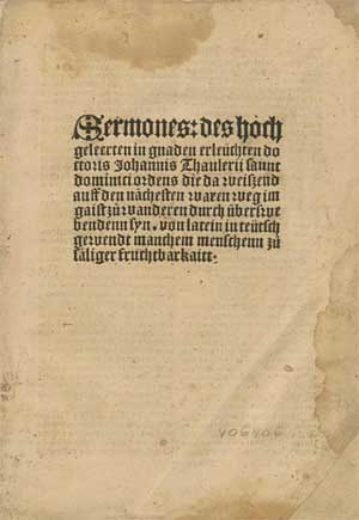 Sermones: des höch
geleerten in gnaden erleüchten do
ctoris Johannis Thaulerii sannt
dominici ordens die da weiszend
auff den nächesten waren weg im
gaist zů wanderen durch überswe
bendenn syn. von latein in teütsch
gewendt manchem menschenn zů
säliger fruchtbarkaitt.
406406